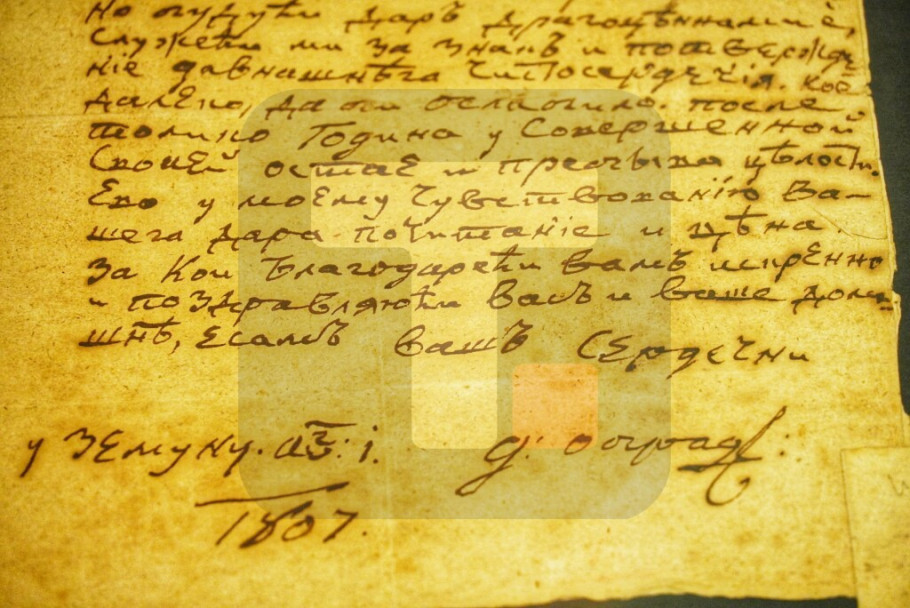 но будући даръ драгоцѣннѣйшіе,
Служећи ми за знакъ и потвержде
ніе давнашнѣга чистосердечія. кое
далеко, да би ослабило. после
толико Година у Совершенной
Своей остае и пречыста цѣлости.
Ево у моему Чувствованію Ва-
шега дара почитаніе и цѣна.
За Кои благодарећи вамъ искренно
и поздравляюћи васъ и ваше дома
шнѣ, есамъ вашъ Сердечни
у Земуну. і.
1807.